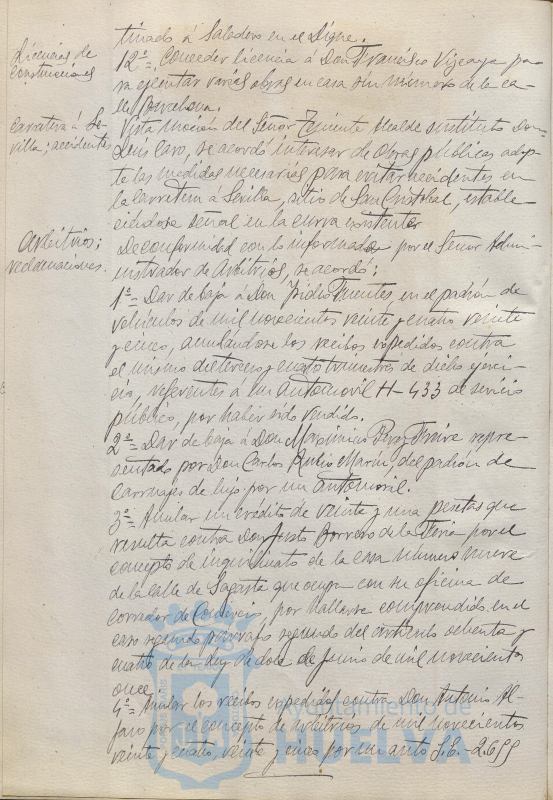 tinado á Saladero en el Dique.
Licencias de
construcciones
12º = Conceder licencia á Don Francisco Vizcaya pa-
ra ejecutar varias obras en casa sin número de la ca-
lle Barcelona.
Carretera á Se-
villa; accidentes
Vista moción del Señor Teniente Alcalde sustituto Don
Luis Caro, se acordó interesar de Obras públicas adop-
te las medidas necesarias para evitar accidentes en
la carretera á Sevilla, sitio de San Cristobal, estable-
ciéndose señal en la curva existente.
Arbitrios;
reclamaciones.
De conformidad con lo informado por el Señor Admi-
nistrador de Arbitrios, se acordó:
1º = Dar de baja á Don Isidro Fuentes en el padrón de
vehículos de mil novecientos veinte y cuatro veinte
y cinco, anulándose los recibos expedidos contra
el mismo del tercero y cuarto trimestres de dicho ejerci-
cio, referentes á un automovil H-433 de servicio
público, por haber sido vendido.
2º = Dar de baja á Don Maximino Perez Freire repre-
sentado por Don Carlos Rubio Marín, del padrón de
carruajes de lujo por un automovil.
3º = Anular un crédito de veinte y una pesetas que
resulta contra Don Justo Borrero de la Feria por el
concepto de inquilinato de la casa número nueve
de la calle de Sagasta que ocupa con su oficina de
corredor de Comercio, por hallarse comprendido en el
caso segundo párrafo segundo del artículo ochenta y
cuatro de la Ley de doce de junio de mil novecientos
once.
4º = Anular los recibos expedidos contra Don Antonio Al-
faro por el concepto de arbitrios de mil novecientos
veinte y cuatro, veinte y cinco por un auto S.E.-2.699
Ayuntamiento de
HUELVA